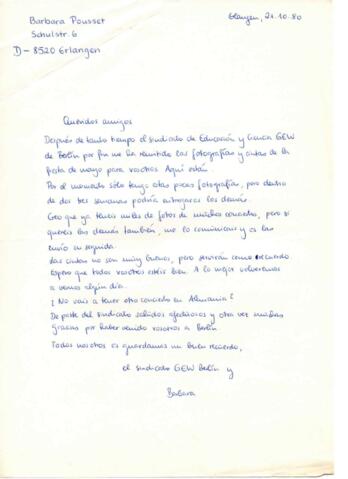 Barbara Pousset
Schulstr. 6
D-8520 Erlangen
Erlangen, 21.10.80
Queridos amigos
Después de tanto tiempo el sindicado de Educación y Ciencia GEW
de Berlín por fin me ha remitido las fotografías y cintas de la
fiesta de mayo para vosotros. Aquí están.
Por el momento sólo tengo estas pocas fotografías, pero dentro
de dos tres semanas podría entregaros las demás.
Creo que ya tenéis miles de fotos de muchos conciertos, pero si
queréis las demás también, me lo comunicáis y os las
envío en seguida.
Las cintas no son muy buenas, pero servirán como recuerdo.
Espero que todos vosotros estéis bien. A lo mejor volveremos
a vernos algún día.
¿No vais a tener otro concierto en Alemania?
De parte del sindicado saludos afectuosos y otra vez muchas
gracias por haber venido vosotros a Berlín.
Todos nosotros os guardamos un buen recuerdo,
el sindicado GEW Berlín y
Barbara